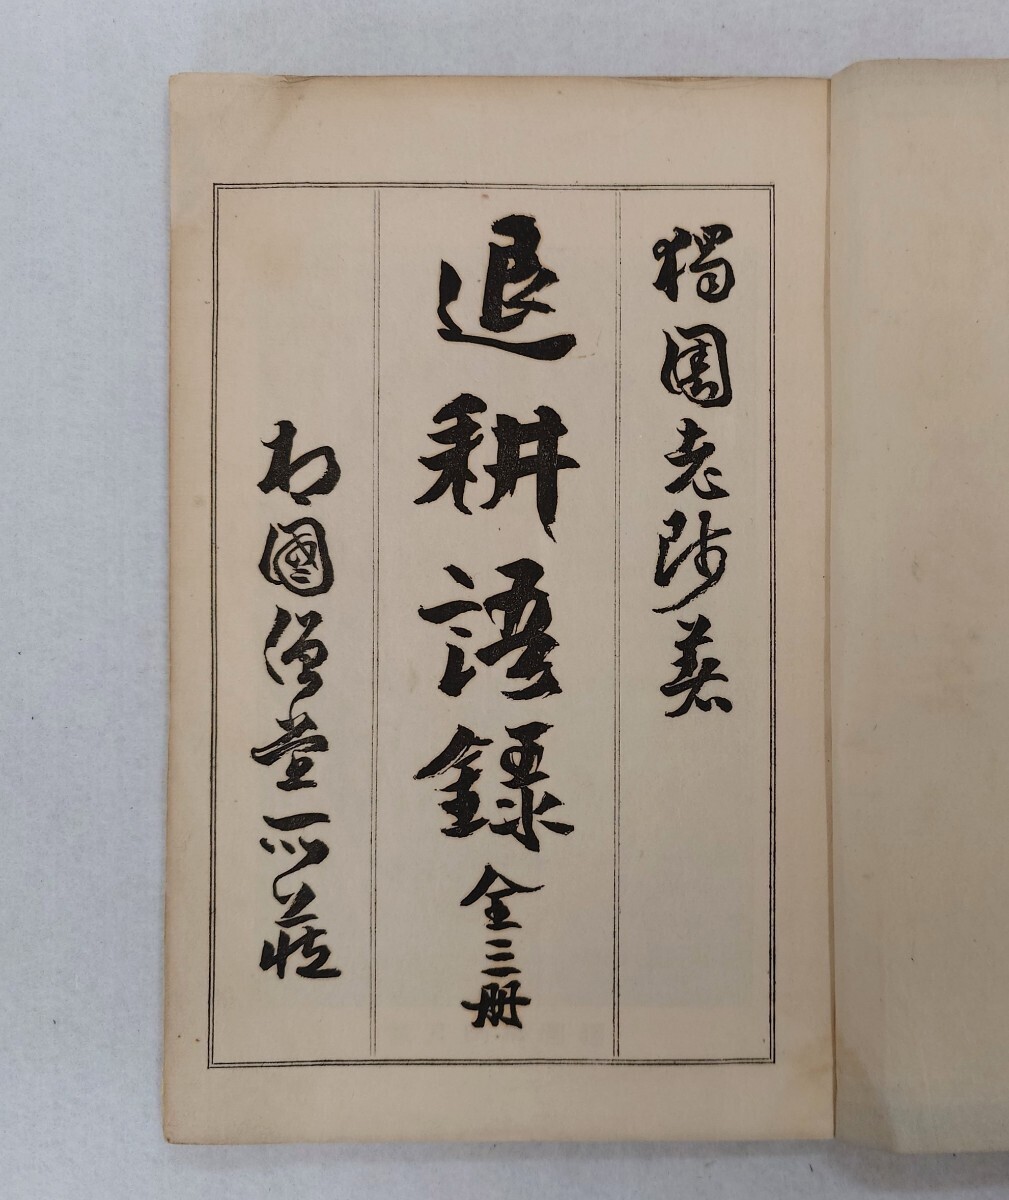 獨園老師著
退耕語録 全三册
相國僧堂所藏